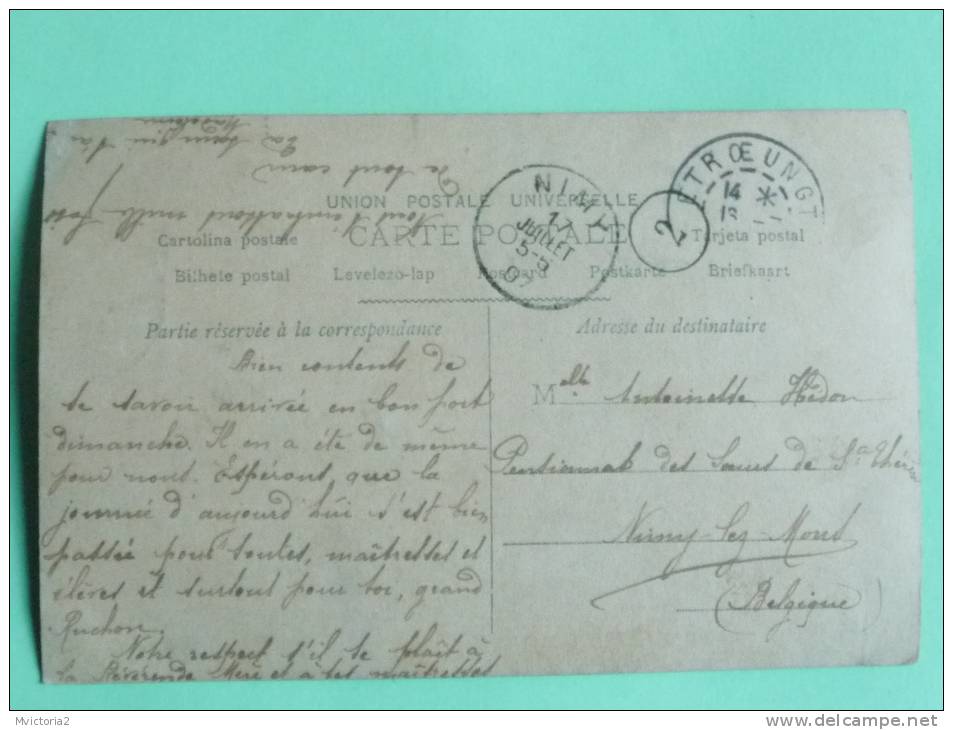 La
de tout cœur
Nous t'embrassons mille fois
UNION POSTALE UNIVERSELLE
CARTE POSTALE
Cartolina postale
Tarjeta postal
Bilhete postal
Levelezo-lap
Postcard
Postkarte
Briefkaart
NIMY
17
JUILLET
5-5
07
2
ETROEUNGT
14
13
Partie réservée à la correspondance
Bien contents de
te savoir arrivée en bon port
dimanche. Il en a été de même
pour nous. Espérons que la
journée d'aujourd'hui s'est bien
passée pour toutes, maîtresses et
élèves et surtout pour toi, grand
Ruchon.
Notre respect s'il te plaît à
la Révérende Mère et à tes maîtresses
Adresse du destinataire
Melle Antoinette Hédon
Pensionnat des Sœurs de Sta Thérèse
Nimy-lez-Mons
(Belgique)
Mvictoria2
delcampe.net